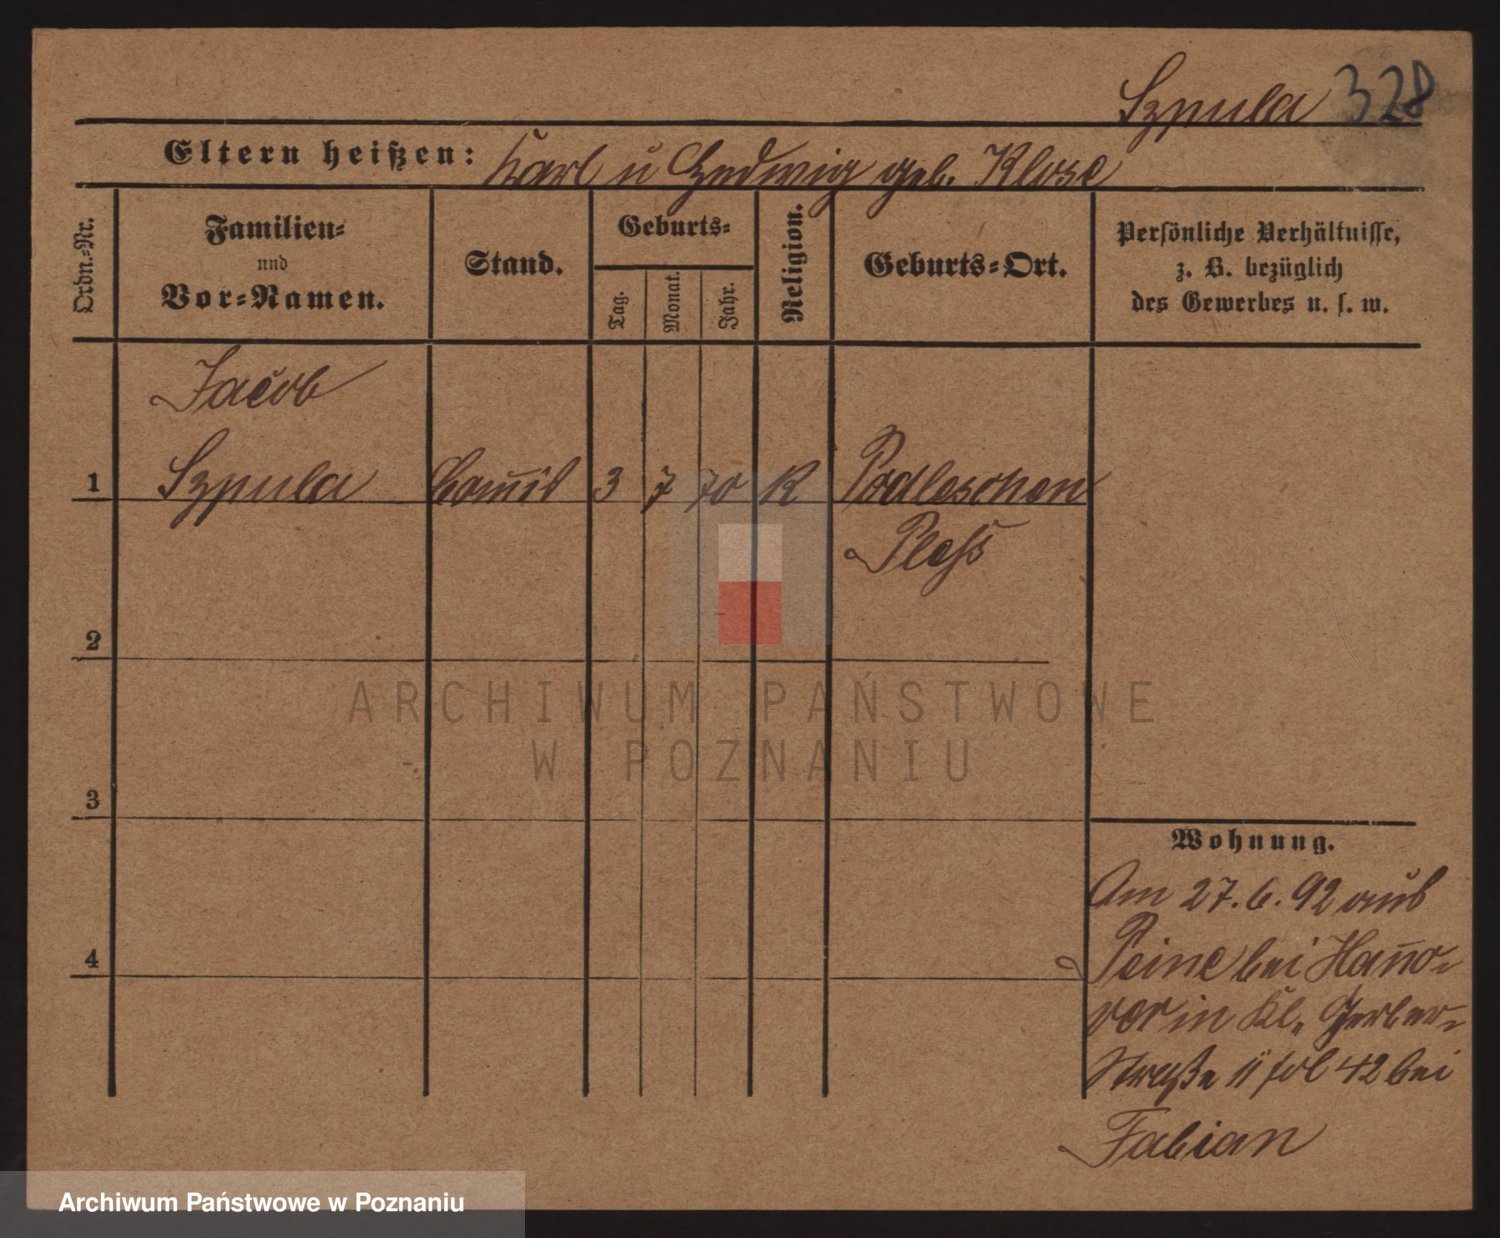 Szpula 328
Eltern heißen: Karl u Hedwig geb. Klose
Ordn.-Nr.
Familien-
und
Vor-Namen.
Stand.
Geburts-
Tag.
Monat.
Jahr.
Religion.
Geburts-Ort.
Persönliche Verhältnisse,
z. B. bezüglich
des Gewerbes u. s. w.
Jacob
1 Szpula Comis 3 7 70 K
Pless
2
ARCHIWUM PAŃSTWOWE
W POZNANIU
3
Wohnung.
Am 27. 6. 92 aus
Peine bei Hanno-
4
ver in Kl. Gerber-
Straße 11 fol 42 bei
Fabian
Archiwum Państwowe w Poznaniu